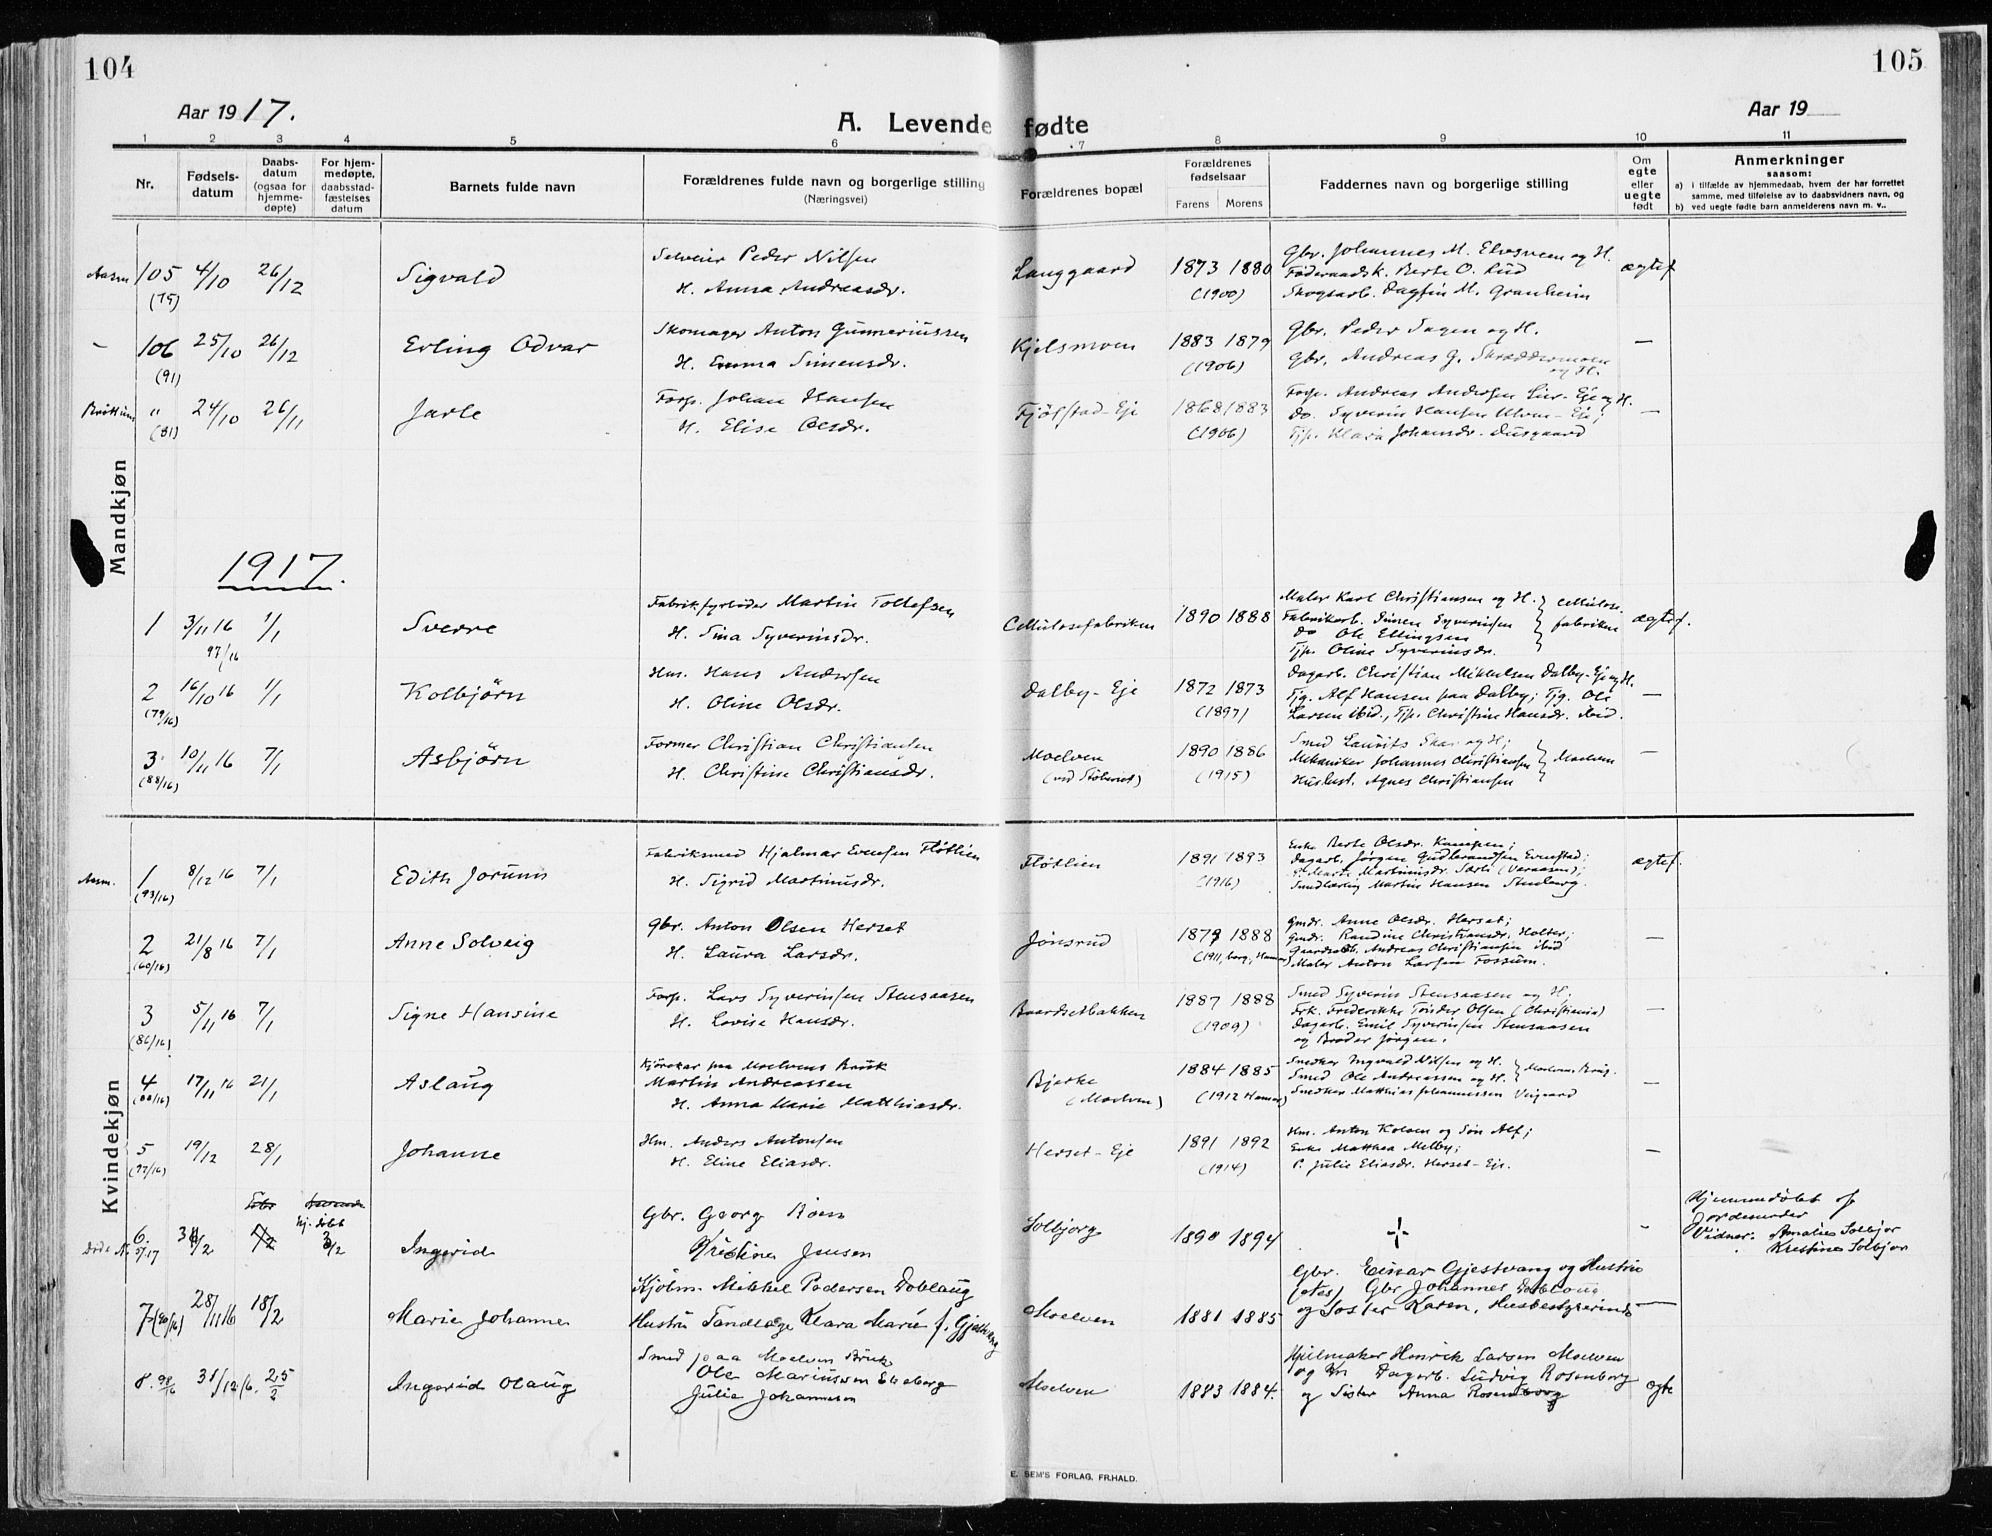 104
105
Aar 1917.
A. Levende fødte
Aar 19
1 2 3 4 5 6 7 8 9 10 11
Nr.
Fødsels-
datum
Daabs-
datum
(ogsaa for
hjemme-
døpte)
For hjem-
medøpte,
daabsstad-
fæstelses
datum
Barnets fulde navn
Forældrenes fulde navn og borgerlige stilling
(Næringsvei)
Forældrenes bopæl
Forældrenes
fødselsaar
Farens Morens
Faddernes navn og borgerlige stilling
Om
egte
eller
uegte
født
Anmerkninger
saasom:
a) i tilfælde av hjemmedaab, hvem der har forrettet
samme, med tilføielse av to daabsvidners navn, og
b) ved uegte fødte barn anmelderens navn m. v..
Mandkjøn
Aasm 105 4/10 26/12 Sigvald Selveier Peder Nilsen Langgaard 1873 1880 Gbr. Johannes M. Elvesveen og H. ægtef
(75) H. Anna Andreasdr. (1900) Føderaadsk. Berte O. Lud
Skogsarb. Dagfin M. Granheim
– 106 25/10 26/12 Erling Odvar Skomager Anton Gunneriussen Kjelsmoen 1883 1879 Gbr. Peder Sagen og H. —
(91) H. Emma Simensdr. (1906) Gbr. Andreas G. Skræddermoen
og H.
" 24/10 26/11 Jarle Forp. Johan Hansen Fjølstad-Eje 1868 1883 Forp. Andreas Andersen Lier-Eje og H. —
(81) H. Elise Olsdr. (1906) Do. Syverin Hansen Ulven-Eje;
Tjp. Klara Johansdr. Dusgaard
1917.
1 3/11 16 1/1 Sverre Fabrikfyrbøder Martin Tollefsen Cellulosefabriken 1890 1888 Maler Karl Christiansen og H. } Cellulose- ægtef.
97/16 H. Sina Syverinsdr. Fabrikarb. Simen Syverinsen fabriken
Do Ole Ellingsen
Tjp. Oline Syverinsdr.
2 16/10 16 1/1 Kolbjørn Hm. Hans Andersen Dalby-Eje 1872 1873 Dagarb. Christian Mikkelsen Dalby-Eje og H. —
(79/16) H. Oline Olsdr. (1897) Tjg. Alf Hansen paa Dalby; Tjg. Ole
Larsen ibid., Tjp. Christine Hansdr. ibid.
3 10/11 16 7/1 Asbjørn Former Christian Christiansen Moelven 1890 1886 Smed Laurits Skar og H; } Moelven —
(88/16) H. Christine Christiansdr. (ved Støberiet) (1915) Mekaniker Johannes Christiansen
Huslust. Agnes Christiansen
Kvindekjøn
Aasm. 1 8/12 16 7/1 Edith Jorunn Fabriksmed Hjalmar Evensen Fløtlien Fløtlien 1891 1893 Enke Berte Olsdr. Kampen; ægtef.
(93/16) H. Sigrid Martinusdr. (1916) Dagarb. Jørgen Gudbrandsen Evenstad;
P. Marti Martinusdr. Sæli (Veraasen);
Smedlærling Martin Hansen Stenberg.
2 21/8 16 7/1 Anne Solveig Gbr. Anton Olsen Herset Jønsrud 1879 1888 Gmdr. Anne Olsdr. Herset; —
(60/16) H. Laura Larsdr. (1911, borg., Hamar) Gmdr. Randine Christiansdr. Holter;
Gaardsarb. Andreas Christiansen ibid
Maler Anton Larsen Fossum.
3 5/11 16 7/1 Signe Hansine Forp. Lars Syverinsen Stensaasen Baardsetbakken 1887 1888 Smed Syverin Stensaasen og H; —
(86/16) H. Lovise Hansdr. (1909) Frk. Frederikke Tønder Olsen (Christiania)
Dagarb. Emil Syverinsen Stensaasen
og Broder Jørgen.
4 17/11 16 21/1 Aslaug Kjørekar paa Moelvens Bruk Bjerke 1884 1885 Snedker Ingvald Nilsen og H. } Moelvens Brug. —
Martin Andreassen (Moelven) (1912 Hamar) Smed Ole Andreassen og H.
H. Anna Marie Matthiasdr. Snedker Matthias Johannessen Veigaard
5 19/12 28/1 Johanne Hm. Anders Antonsen Herset-Eje 1891 1892 Hm. Anton Kolsen og Søn Alf; —
(97/16) H. Eline Eliasdr. (1914) Enke Matthea Melby;
P. Julie Eliasdr. Herset-Eje.
hj. døbt
6. 3/2 Ingerid Gbr. Georg Roen Solbjorg 1890 1894 – Hjemmedøbt af
5/17 Kristine Jensen Jordemoder
Vidner: Amalie Solbjør
Kristine Solbjør
7 (90/16) 28/11 16 18/2 Marie Johanne Kjøbm. Mikkel Pedersen Doblaug Moelven 1881 1885 Gbr. Einar Gjestvang og Hustru —
Hustru Tandlæge Klara Marie f. Gjestvang Gbr Johannes Doblaug
og Søster Karen, Husbestyrerinde
8. 98/16 31/12 16. 25/2 Ingerid Olaug Smed paa Moelven Bruk Moelven 1883 1884. Hjulmaker Henrik Larsen Moelven egte
Ole Mariussen Eneberg og Dagarb. Ludvig Rosenborg
Julie Johannesen og Søster Anna Rosenborg
E. SEM'S FORLAG, FR.HALD.